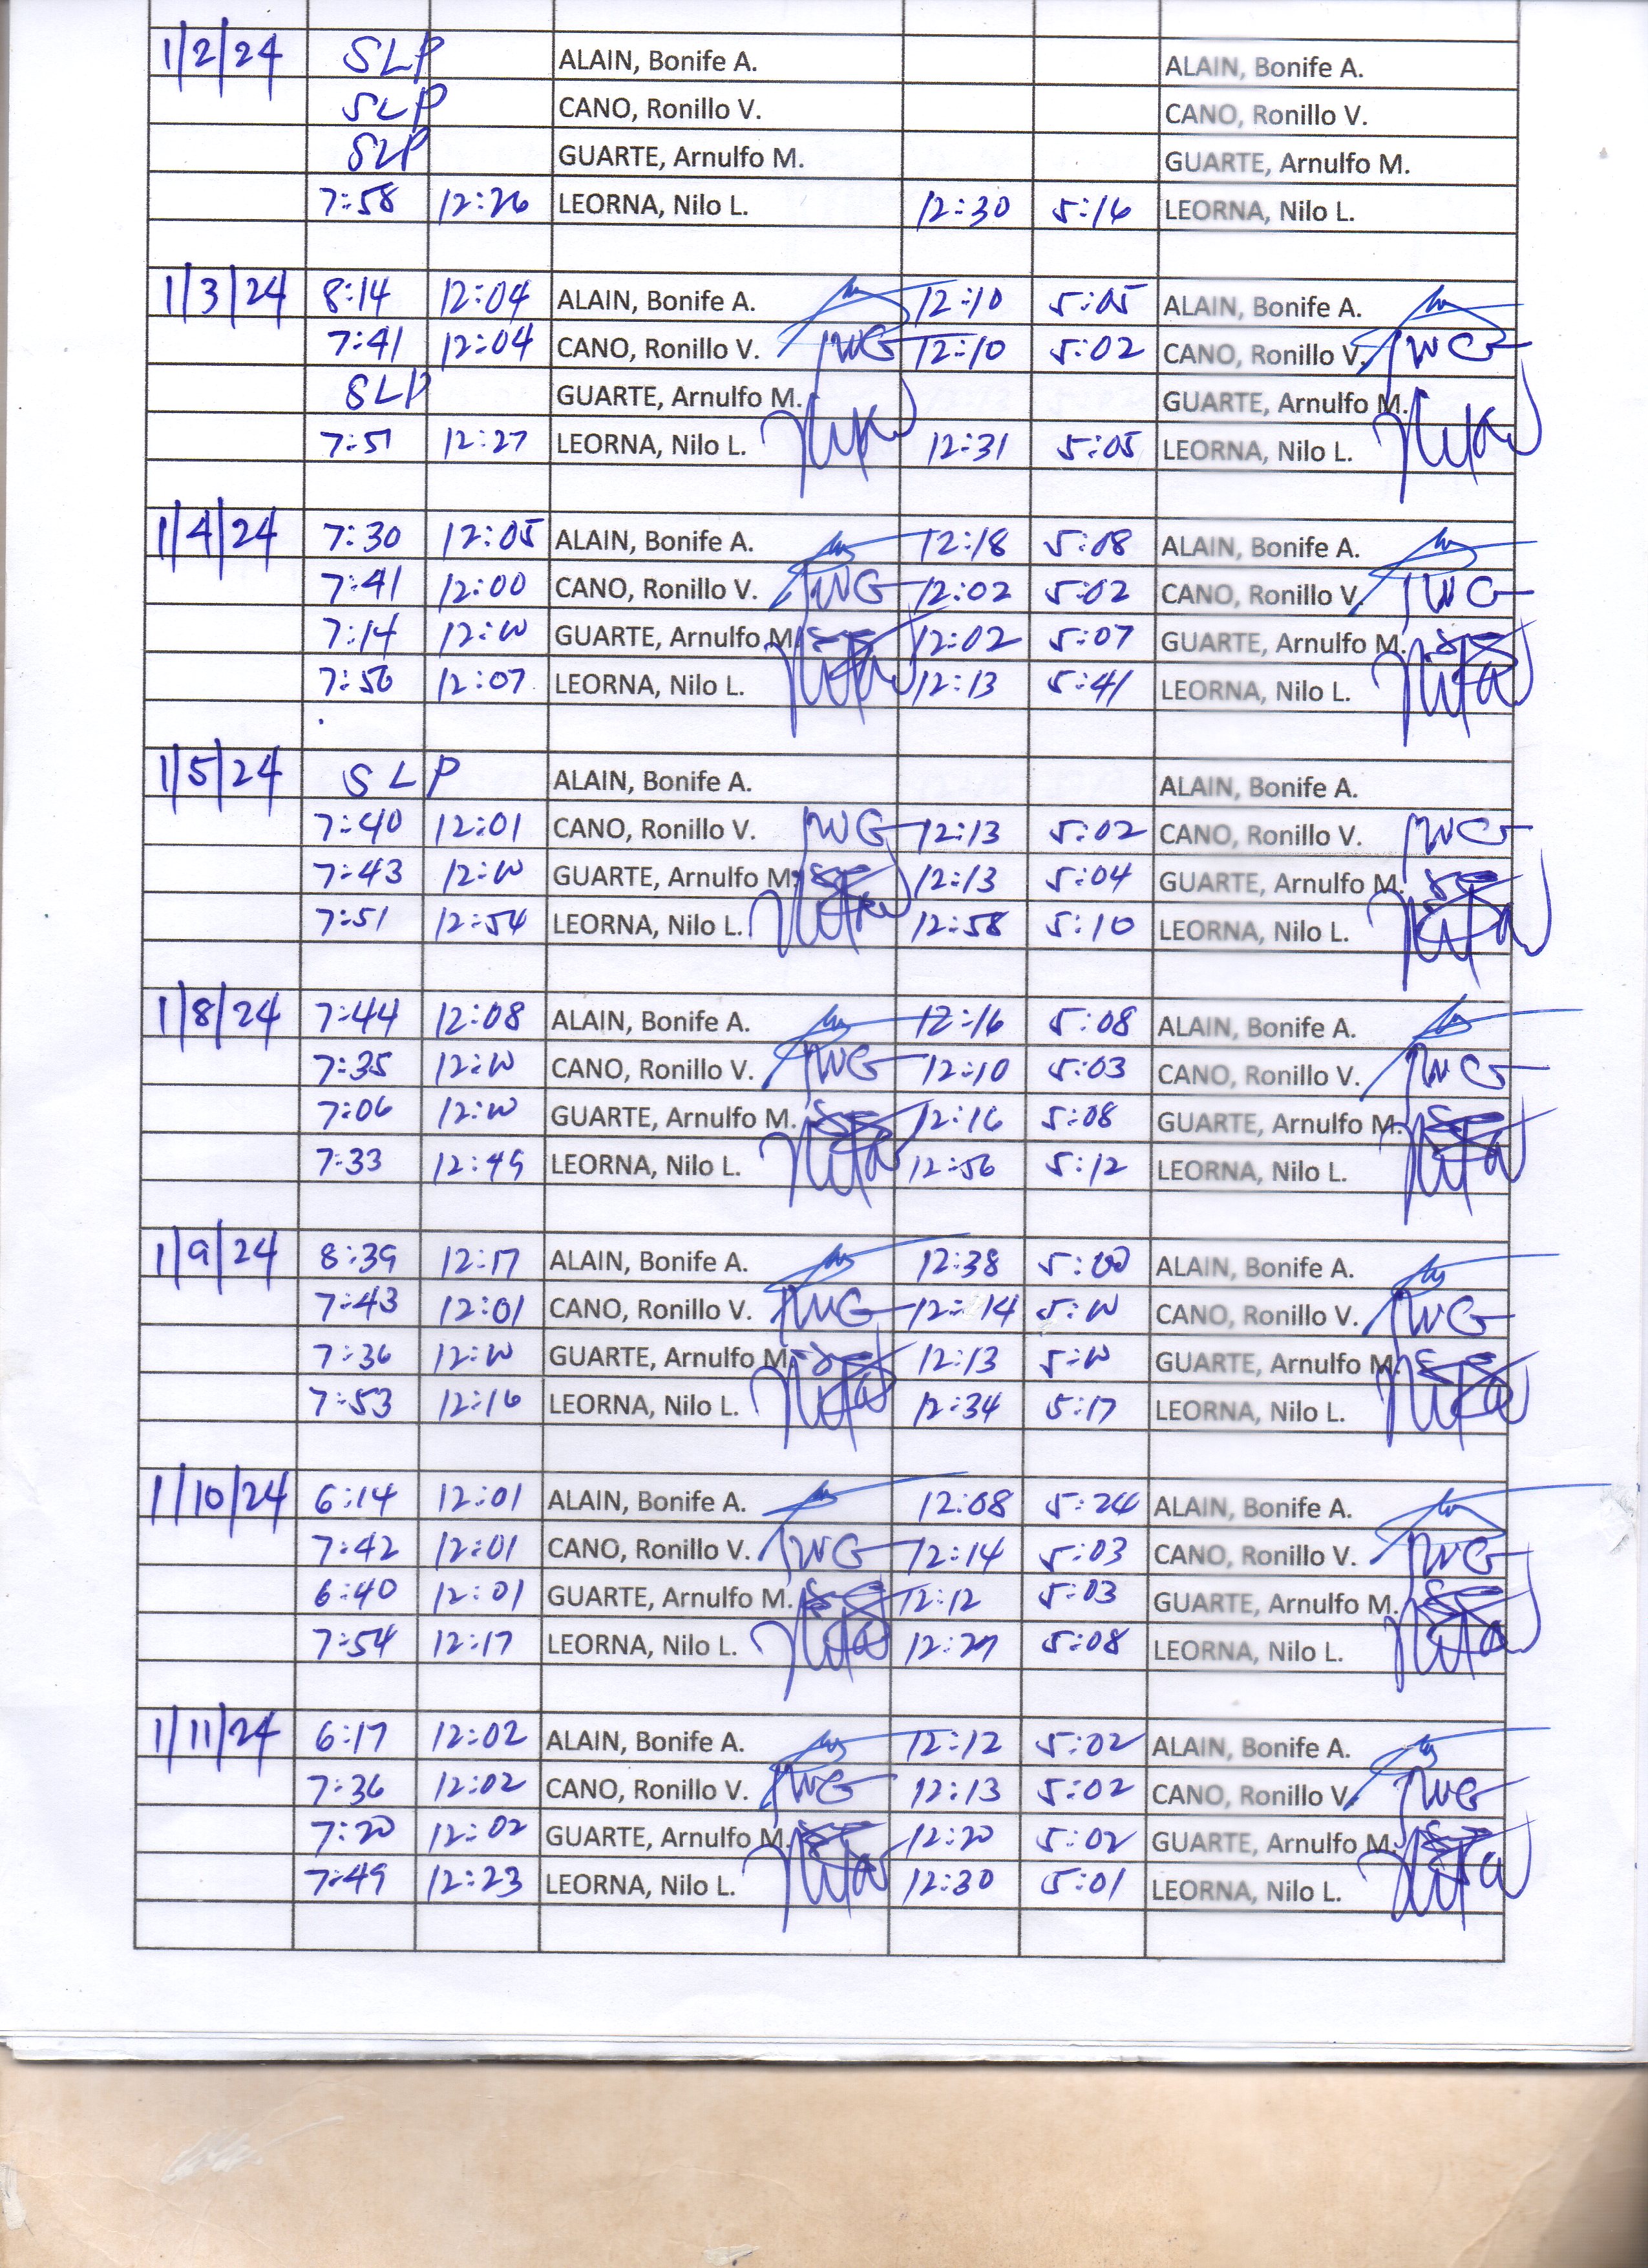 1/2/24 SLP ALAIN, Bonife A. ALAIN, Bonife A.
SLP CANO, Ronillo V. CANO, Ronillo V.
SLP GUARTE, Arnulfo M. GUARTE, Arnulfo M.
7:58 12:26 LEORNA, Nilo L. 12:30 5:16 LEORNA, Nilo L.
1/3/24 8:14 12:04 ALAIN, Bonife A. 12:10 5:05 ALAIN, Bonife A.
7:41 12:04 CANO, Ronillo V. 12:10 5:02 CANO, Ronillo V.
SLP GUARTE, Arnulfo M. GUARTE, Arnulfo M.
7:51 12:27 LEORNA, Nilo L. 12:31 5:05 LEORNA, Nilo L.
1/4/24 7:30 12:05 ALAIN, Bonife A. 12:18 5:08 ALAIN, Bonife A.
7:41 12:00 CANO, Ronillo V. 12:02 5:02 CANO, Ronillo V.
7:14 12:00 GUARTE, Arnulfo M. 12:02 5:07 GUARTE, Arnulfo M.
7:56 12:07 LEORNA, Nilo L. 12:13 5:41 LEORNA, Nilo L.
1/5/24 SLP ALAIN, Bonife A. ALAIN, Bonife A.
7:40 12:01 CANO, Ronillo V. 12:13 5:02 CANO, Ronillo V.
7:43 12:00 GUARTE, Arnulfo M. 12:13 5:04 GUARTE, Arnulfo M.
7:51 12:54 LEORNA, Nilo L. 12:58 5:10 LEORNA, Nilo L.
1/8/24 7:44 12:08 ALAIN, Bonife A. 12:16 5:08 ALAIN, Bonife A.
7:35 12:00 CANO, Ronillo V. 12:10 5:03 CANO, Ronillo V.
7:06 12:00 GUARTE, Arnulfo M. 12:16 5:08 GUARTE, Arnulfo M.
7:33 12:49 LEORNA, Nilo L. 12:56 5:12 LEORNA, Nilo L.
1/9/24 8:39 12:17 ALAIN, Bonife A. 12:38 5:00 ALAIN, Bonife A.
7:43 12:01 CANO, Ronillo V. 12:14 5:00 CANO, Ronillo V.
7:36 12:00 GUARTE, Arnulfo M. 12:13 5:00 GUARTE, Arnulfo M.
7:53 12:16 LEORNA, Nilo L. 12:34 5:17 LEORNA, Nilo L.
1/10/24 6:14 12:01 ALAIN, Bonife A. 12:08 5:24 ALAIN, Bonife A.
7:42 12:01 CANO, Ronillo V. 12:14 5:03 CANO, Ronillo V.
6:40 12:01 GUARTE, Arnulfo M. 12:12 5:03 GUARTE, Arnulfo M.
7:54 12:17 LEORNA, Nilo L. 5:08 LEORNA, Nilo L.
1/11/24 6:17 12:02 ALAIN, Bonife A. 12:12 5:02 ALAIN, Bonife A.
7:36 12:02 CANO, Ronillo V. 12:13 5:02 CANO, Ronillo V.
7:20 12:02 GUARTE, Arnulfo M. 12:20 5:02 GUARTE, Arnulfo M.
7:49 12:23 LEORNA, Nilo L. 12:30 5:01 LEORNA, Nilo L.